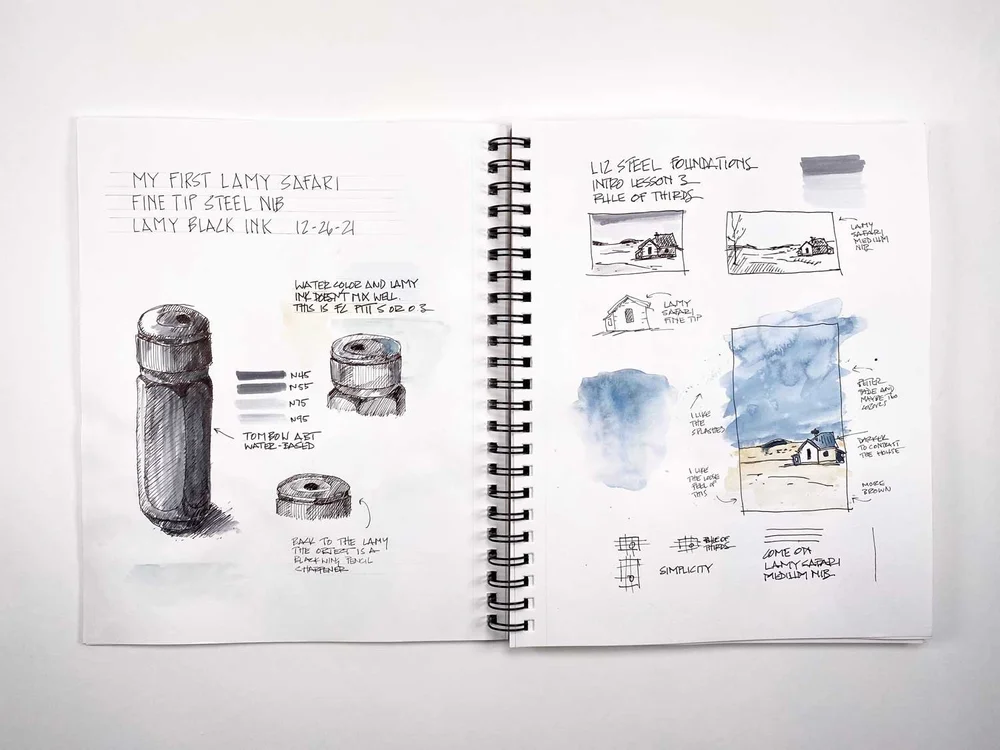 MY FIRST LAMY SAFARI
FINE TIP STEEL NIB
LAMY BLACK INK 12-26-21
WATER COLOR AND LAMY
INK DOESN'T MIX WELL.
THIS IS
N45
N55
N75
N95
TOMBOW ABT
WATER-BASED
BACK TO THE LAMY
THE OBJECT IS A
BLACKWING PENCIL
SHARPENER
LIZ STEEL FOUNDATIONS
INTRO LESSON 3
RULE OF THIRDS
LAMY
SAFARI
MEDIUM
NIB
LAMY
SAFARI
FINE TIP
I LIKE
THE
SPLASHES
I LIKE
THE LOOSE
FEEL OF
THIS
AND
MAYBE
DARKER
TO CONTRAST
THE HOUSE
MORE
BROWN
RULE OF
THIRDS
SIMPLICITY
COME ON
LAMY SAFARI
MEDIUM NIB